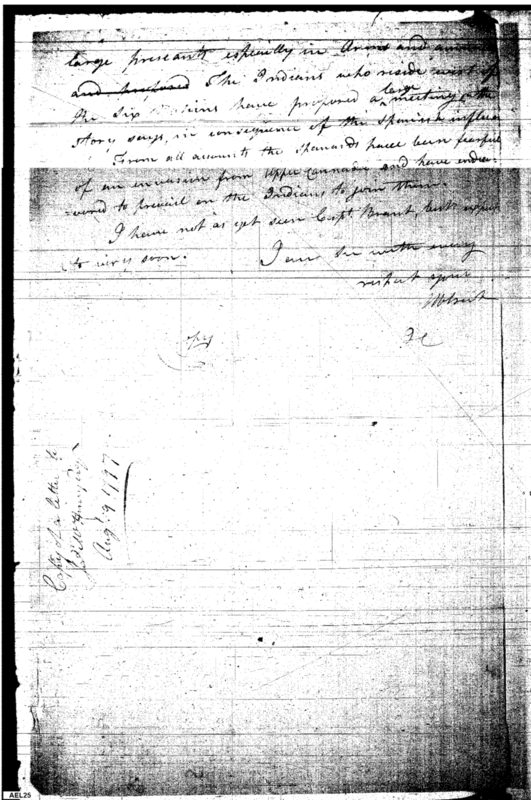 large presents especially in Arms and
and The Indians who reside west of
the Six Nations have proposed a large meeting, the
Story says, in consequence of the Spanish influen
From all accounts the Spaniards have been fearful
of an invasion from Upper Cannada and have endea-
-vored to prevail on the Indians to join them.
I have not as yet seen Capt Brant, but expect
to very soon.
I am Sir with every
respect your
&c
Copy
Copy of a letter to
Augt 9 1797
AEL25